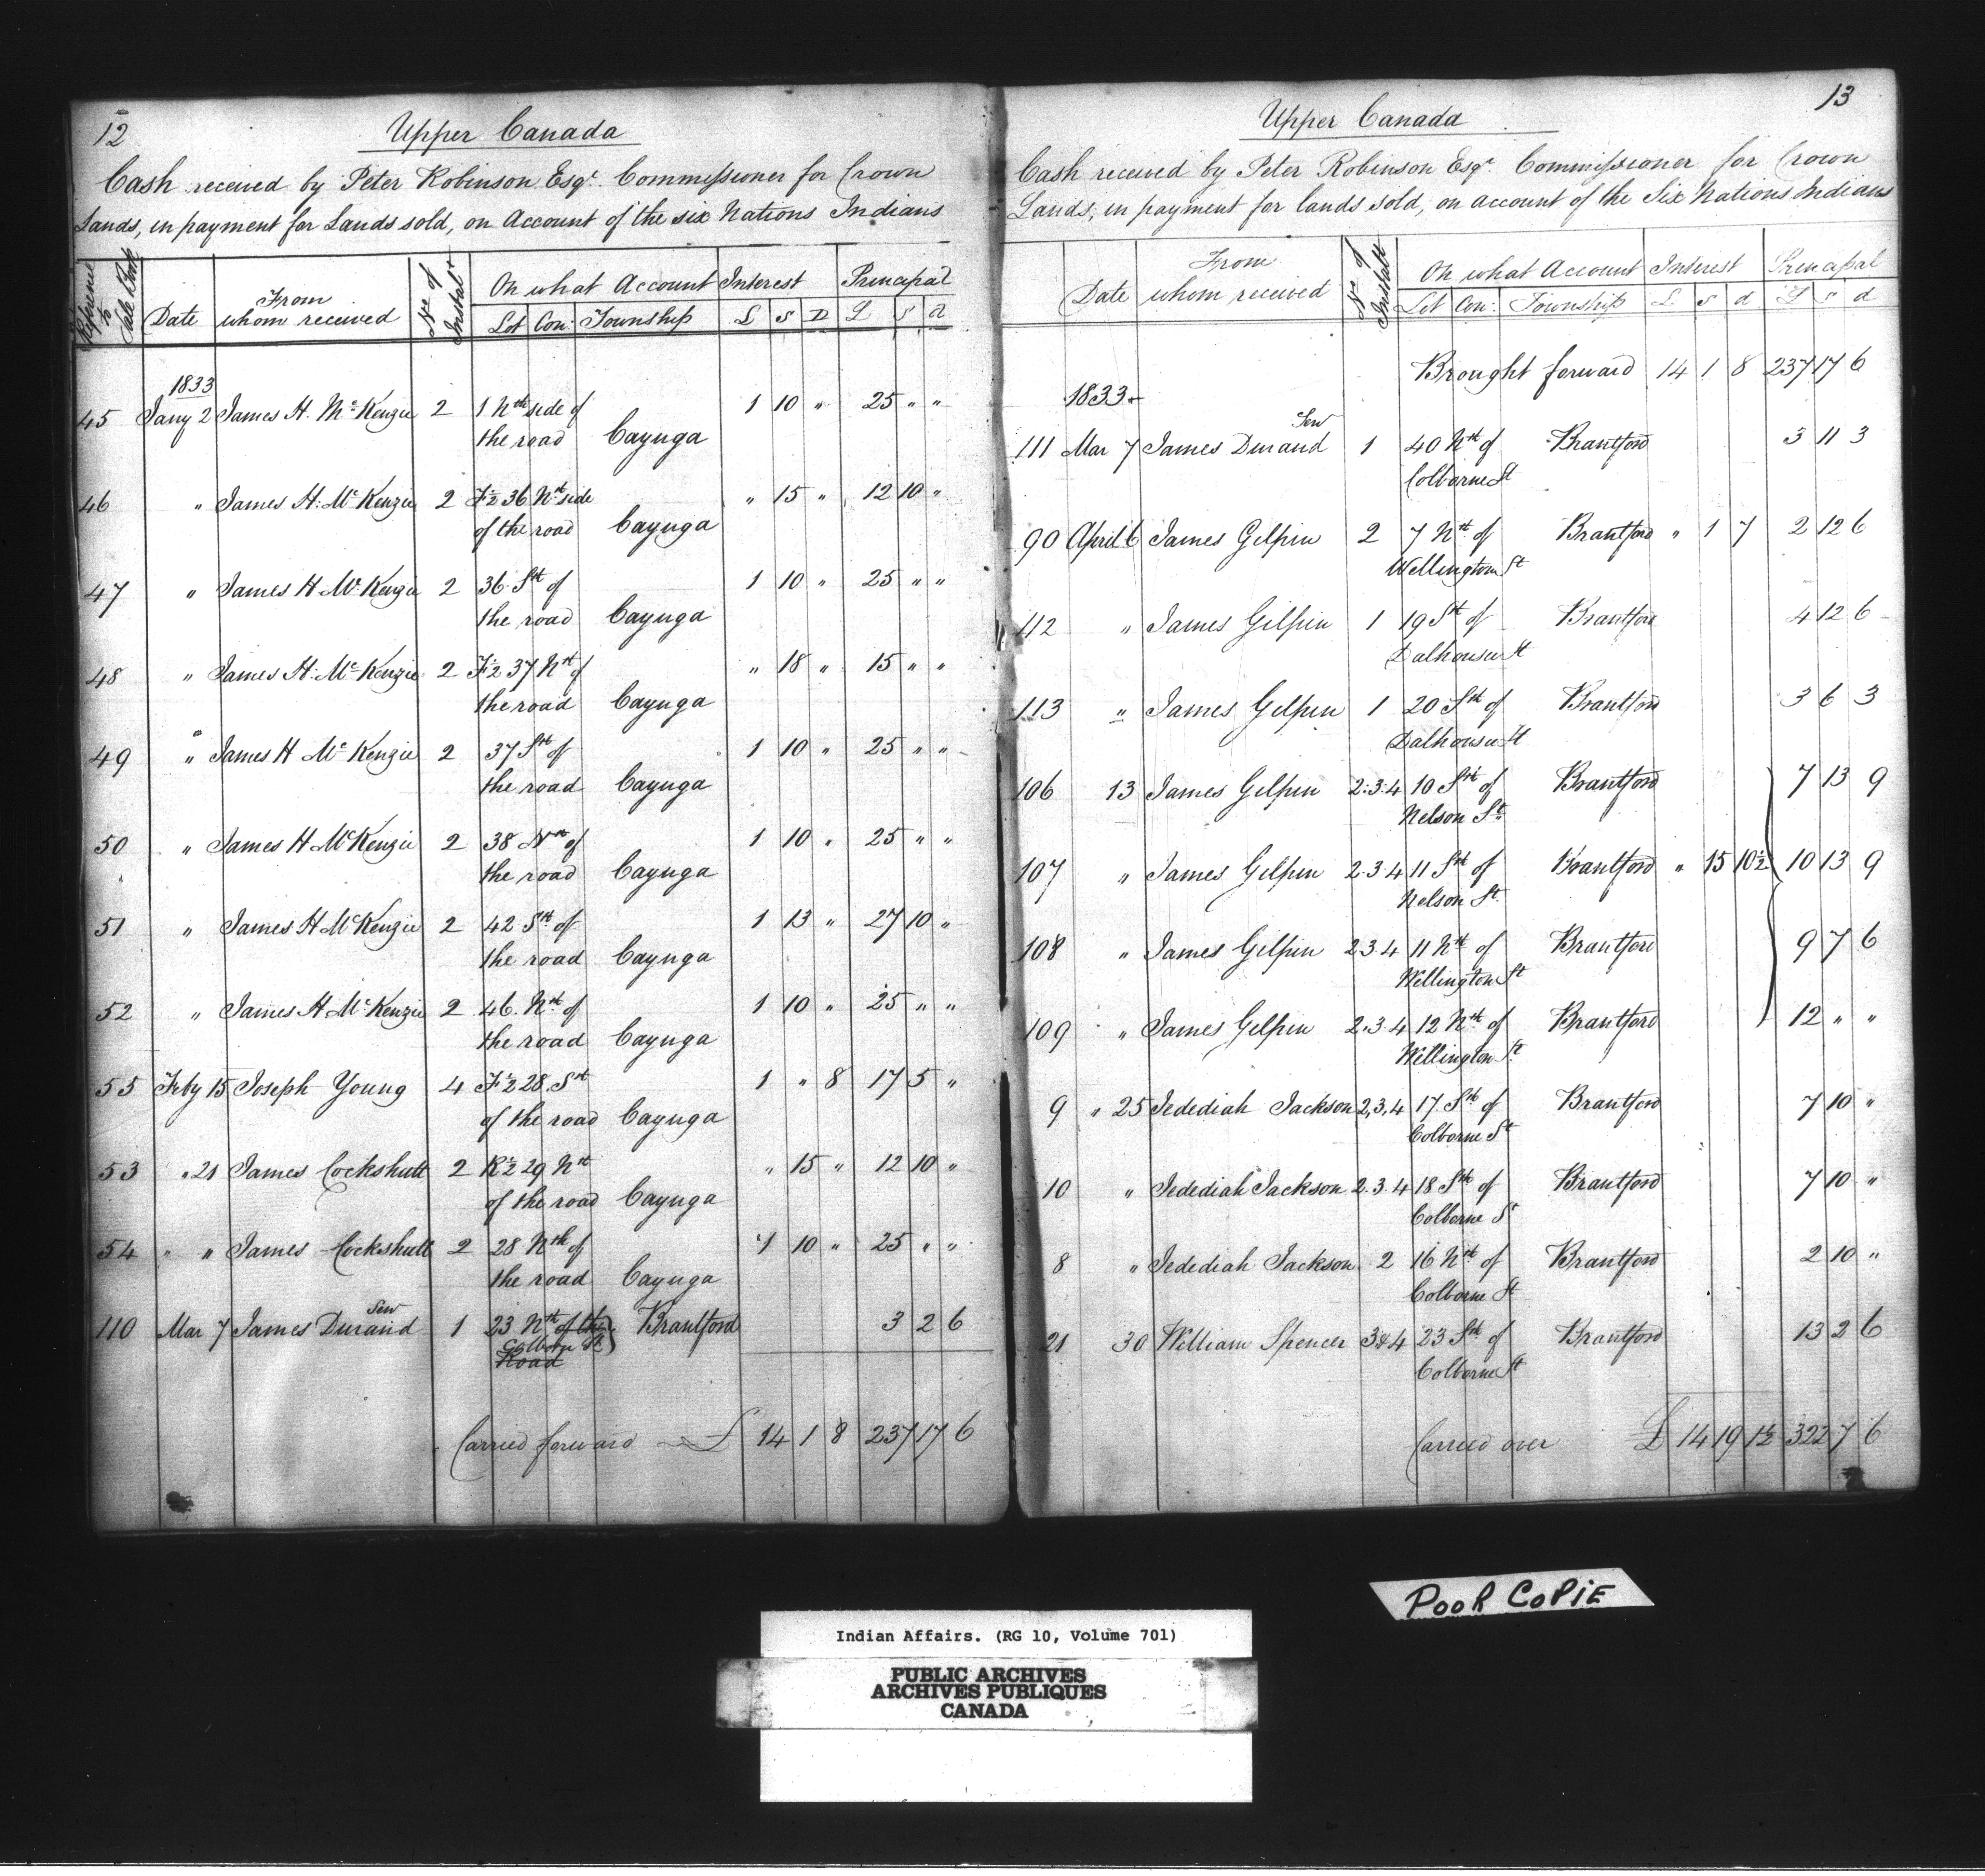 12
Upper Canada
Cash received by Peter Robinson Esqr. Commissioner for Crown
Lands, in payment for Lands sold, on Account of the six Nations Indians
Reference to Sale Book Date From whom received No. of Instalt. On what Account Interest Principal
Lot Con: Township £ s D £ s d
1833
45 Jany 2 James H. McKenzie 2 1 Nth side of 1 10 " 25 " "
the road Cayuga
46 " James H. McKenzie 2 F½ 36 Nth side " 15 " 12 10 "
of the road Cayuga
47 " James H McKenzie 2 36 Sth of 1 10 " 25 " "
the road Cayuga
48 " James H. McKenzie 2 F½ 37 Nth of " 18 " 15 " "
the road Cayuga
49 " James H McKenzie 2 37 Sth of 1 10 " 25 " "
the road Cayuga
50 " James H McKenzie 2 38 Nth of 1 10 " 25 " "
the road Cayuga
51 " James H McKenzie 2 42 Sth of 1 13 " 27 10 "
the road Cayuga
52 " James H McKenzie 2 46 Nth of 1 10 " 25 " "
the road Cayuga
55 Feby 15 Joseph Young 4 F½ 28 Sth 1 " 8 17 5 "
of the road Cayuga
53 " 21 James Cockshutt 2 R½ 29 Nth " 15 " 12 10 "
of the road Cayuga
54 " " James Cockshutt 2 28 Nth of 1 10 " 25 " "
the road Cayuga
110 Mar 7 James Durand Senr 1 23 Nth of the Brantford 3 2 6
Colborne St
Road
Carried forward £ 14 1 8 237 17 6
13
Upper Canada
Cash received by Peter Robinson Esqr. Commissioner for Crown
Lands, in payment for lands sold, on account of the Six Nations Indians
Date From whom received No. of Instalt On what Account Interest Principal
Lot Con: Township £ s d £ s d
Brought forward 14 1 8 237 17 6
1833
111 Mar 7 James Durand Senr 1 40 Nth of Brantford 3 11 3
Colborne St
90 April 6 James Gilpin 2 7 Nth of Brantford " 1 7 2 12 6
Wellington St
112 " James Gilpin 1 19 Sth of Brantford 4 12 6
Dalhousie St
113 " James Gilpin 1 20 Sth of Brantford 3 6 3
Dalhousie St
106 13 James Gilpin 2.3.4 10 Sth of Brantford 7 13 9
Nelson St
107 " James Gilpin 2.3.4 11 Sth of Brantford " 15 10½ 10 13 9
Nelson St.
108 " James Gilpin 2.3.4 11 Nth of Brantford 9 7 6
Wellington St
109 " James Gilpin 2.3.4 12 Nth of Brantford 12 " "
Wellington St
9 " 25 Jedediah Jackson 2,3,4 17 Sth of Brantford 7 10 "
Colborne St
10 " Jedediah Jackson 2.3.4 18 Sth of Brantford 7 10 "
Colborne St
8 " Jedediah Jackson 2 16 Nth of Brantford 2 10 "
Colborne St
21 30 William Spencer 3&4 23 Sth of Brantford 13 2 6
Colborne St
Carried over £ 14 19 1½ 322 7 6
POOR COPIE
Indian Affairs. (RG 10, Volume 701)
PUBLIC ARCHIVES
ARCHIVES PUBLIQUES
CANADA